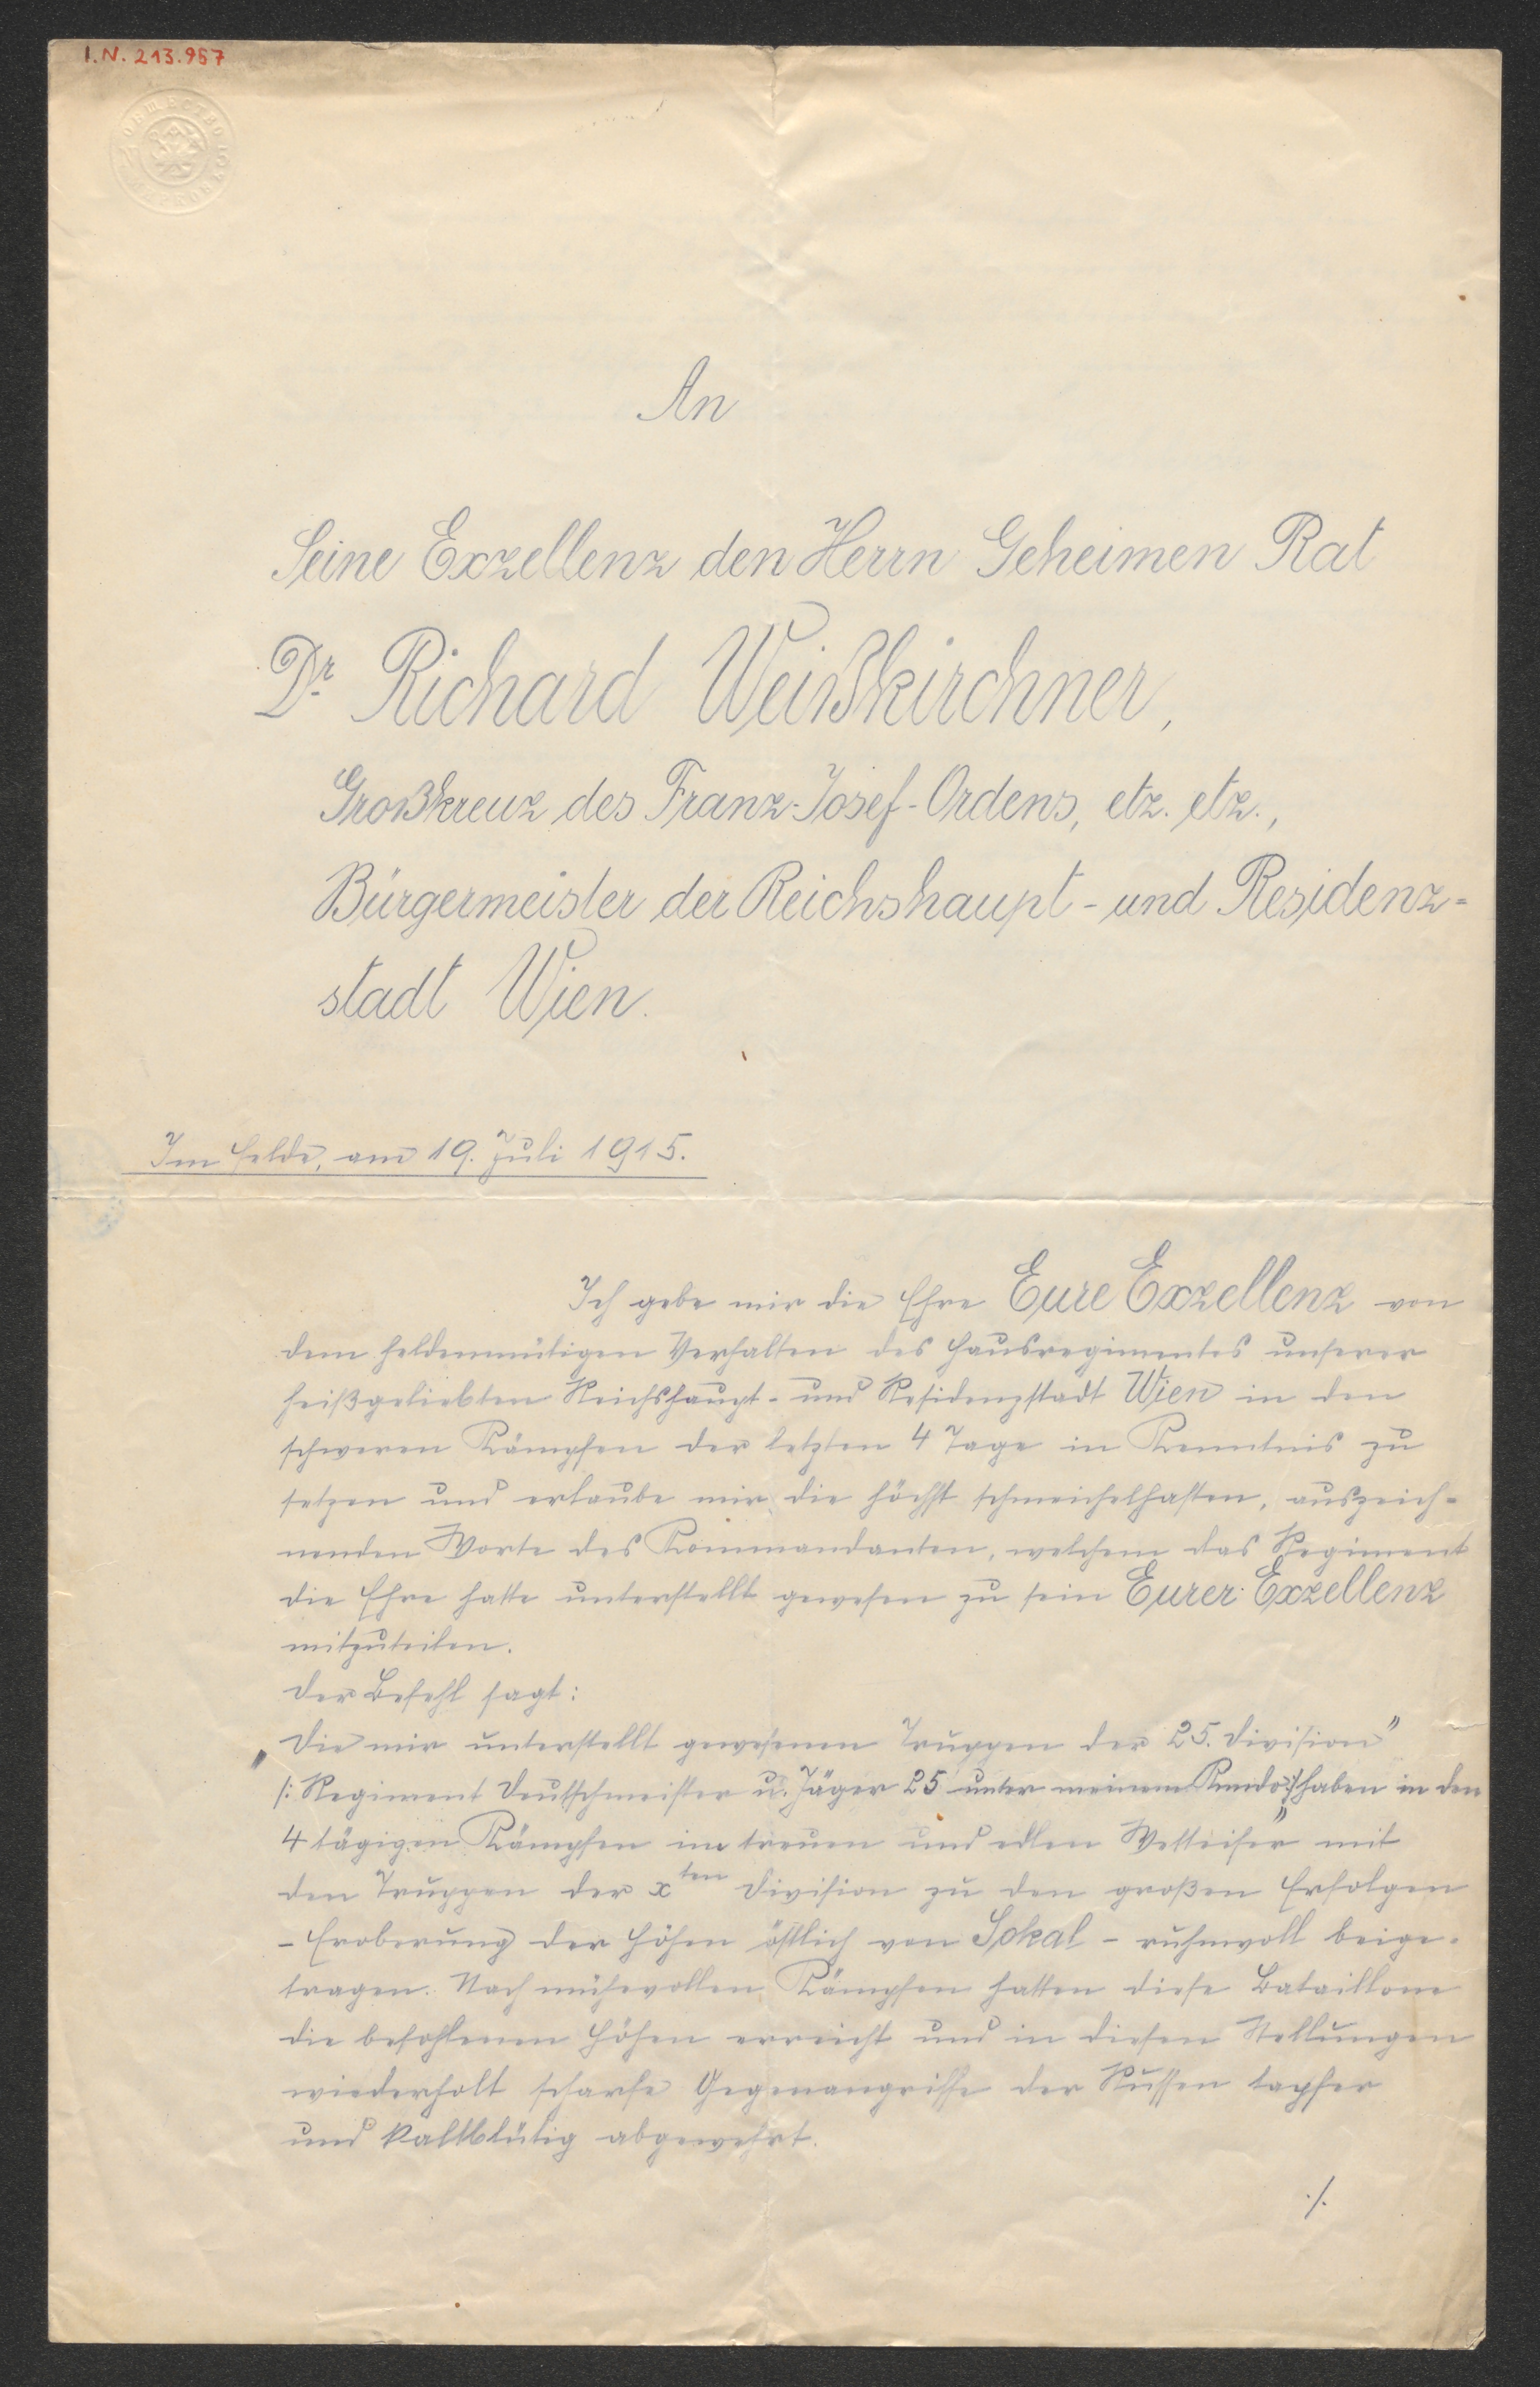 I.N. 213.957
ОБЩЕСТВО
An
Seine Exzellenz den Herrn Geheimen Rat
Dr. Richard Weißkirchner,
Großkreuz des Franz-Josef-Ordens, etz. etz.,
Bürgermeister der Reichshaupt- und Residenz=
stadt Wien.
Im Felde, am 19. Juli 1915.
Ich gebe mir die Ehre Eure Exzellenz von
dem heldenmütigen Verhalten des Hausregimentes unserer
heißgeliebten Reichshaupt- und Residenzstadt Wien in den
schweren Kämpfen der letzten 4 Tage in Kenntnis zu
setzen und erlaube mir die höchst schmeichelhaften, auszeich=
nenden Worte des Kommandanten, welchem das Regiment
die Ehre hatte unterstellt gewesen zu sein Eurer Exzellenz
mitzuteilen.
Der Befehl sagt:
"Die mir unterstellt gewesenen Truppen der 25. Division"
/: Regiment Deutschmeister u. Jäger 25 unter meinem Kmdo :/ haben in den
4 tägigen Kämpfen im treuen und edlen Wetteifer" mit
den Truppen der x ten Division zu den großen Erfolgen
- Eroberung der Höhen östlich von Sokal - ruhmvoll beige-
tragen. Nach mühevollen Kämpfen hatten diese Bataillone
die befohlenen Höhen erreicht und in diesen Stellungen
wiederholt scharfe Gegenangriffe der Russen tapfer
und kaltblütig abgewehrt.
./.